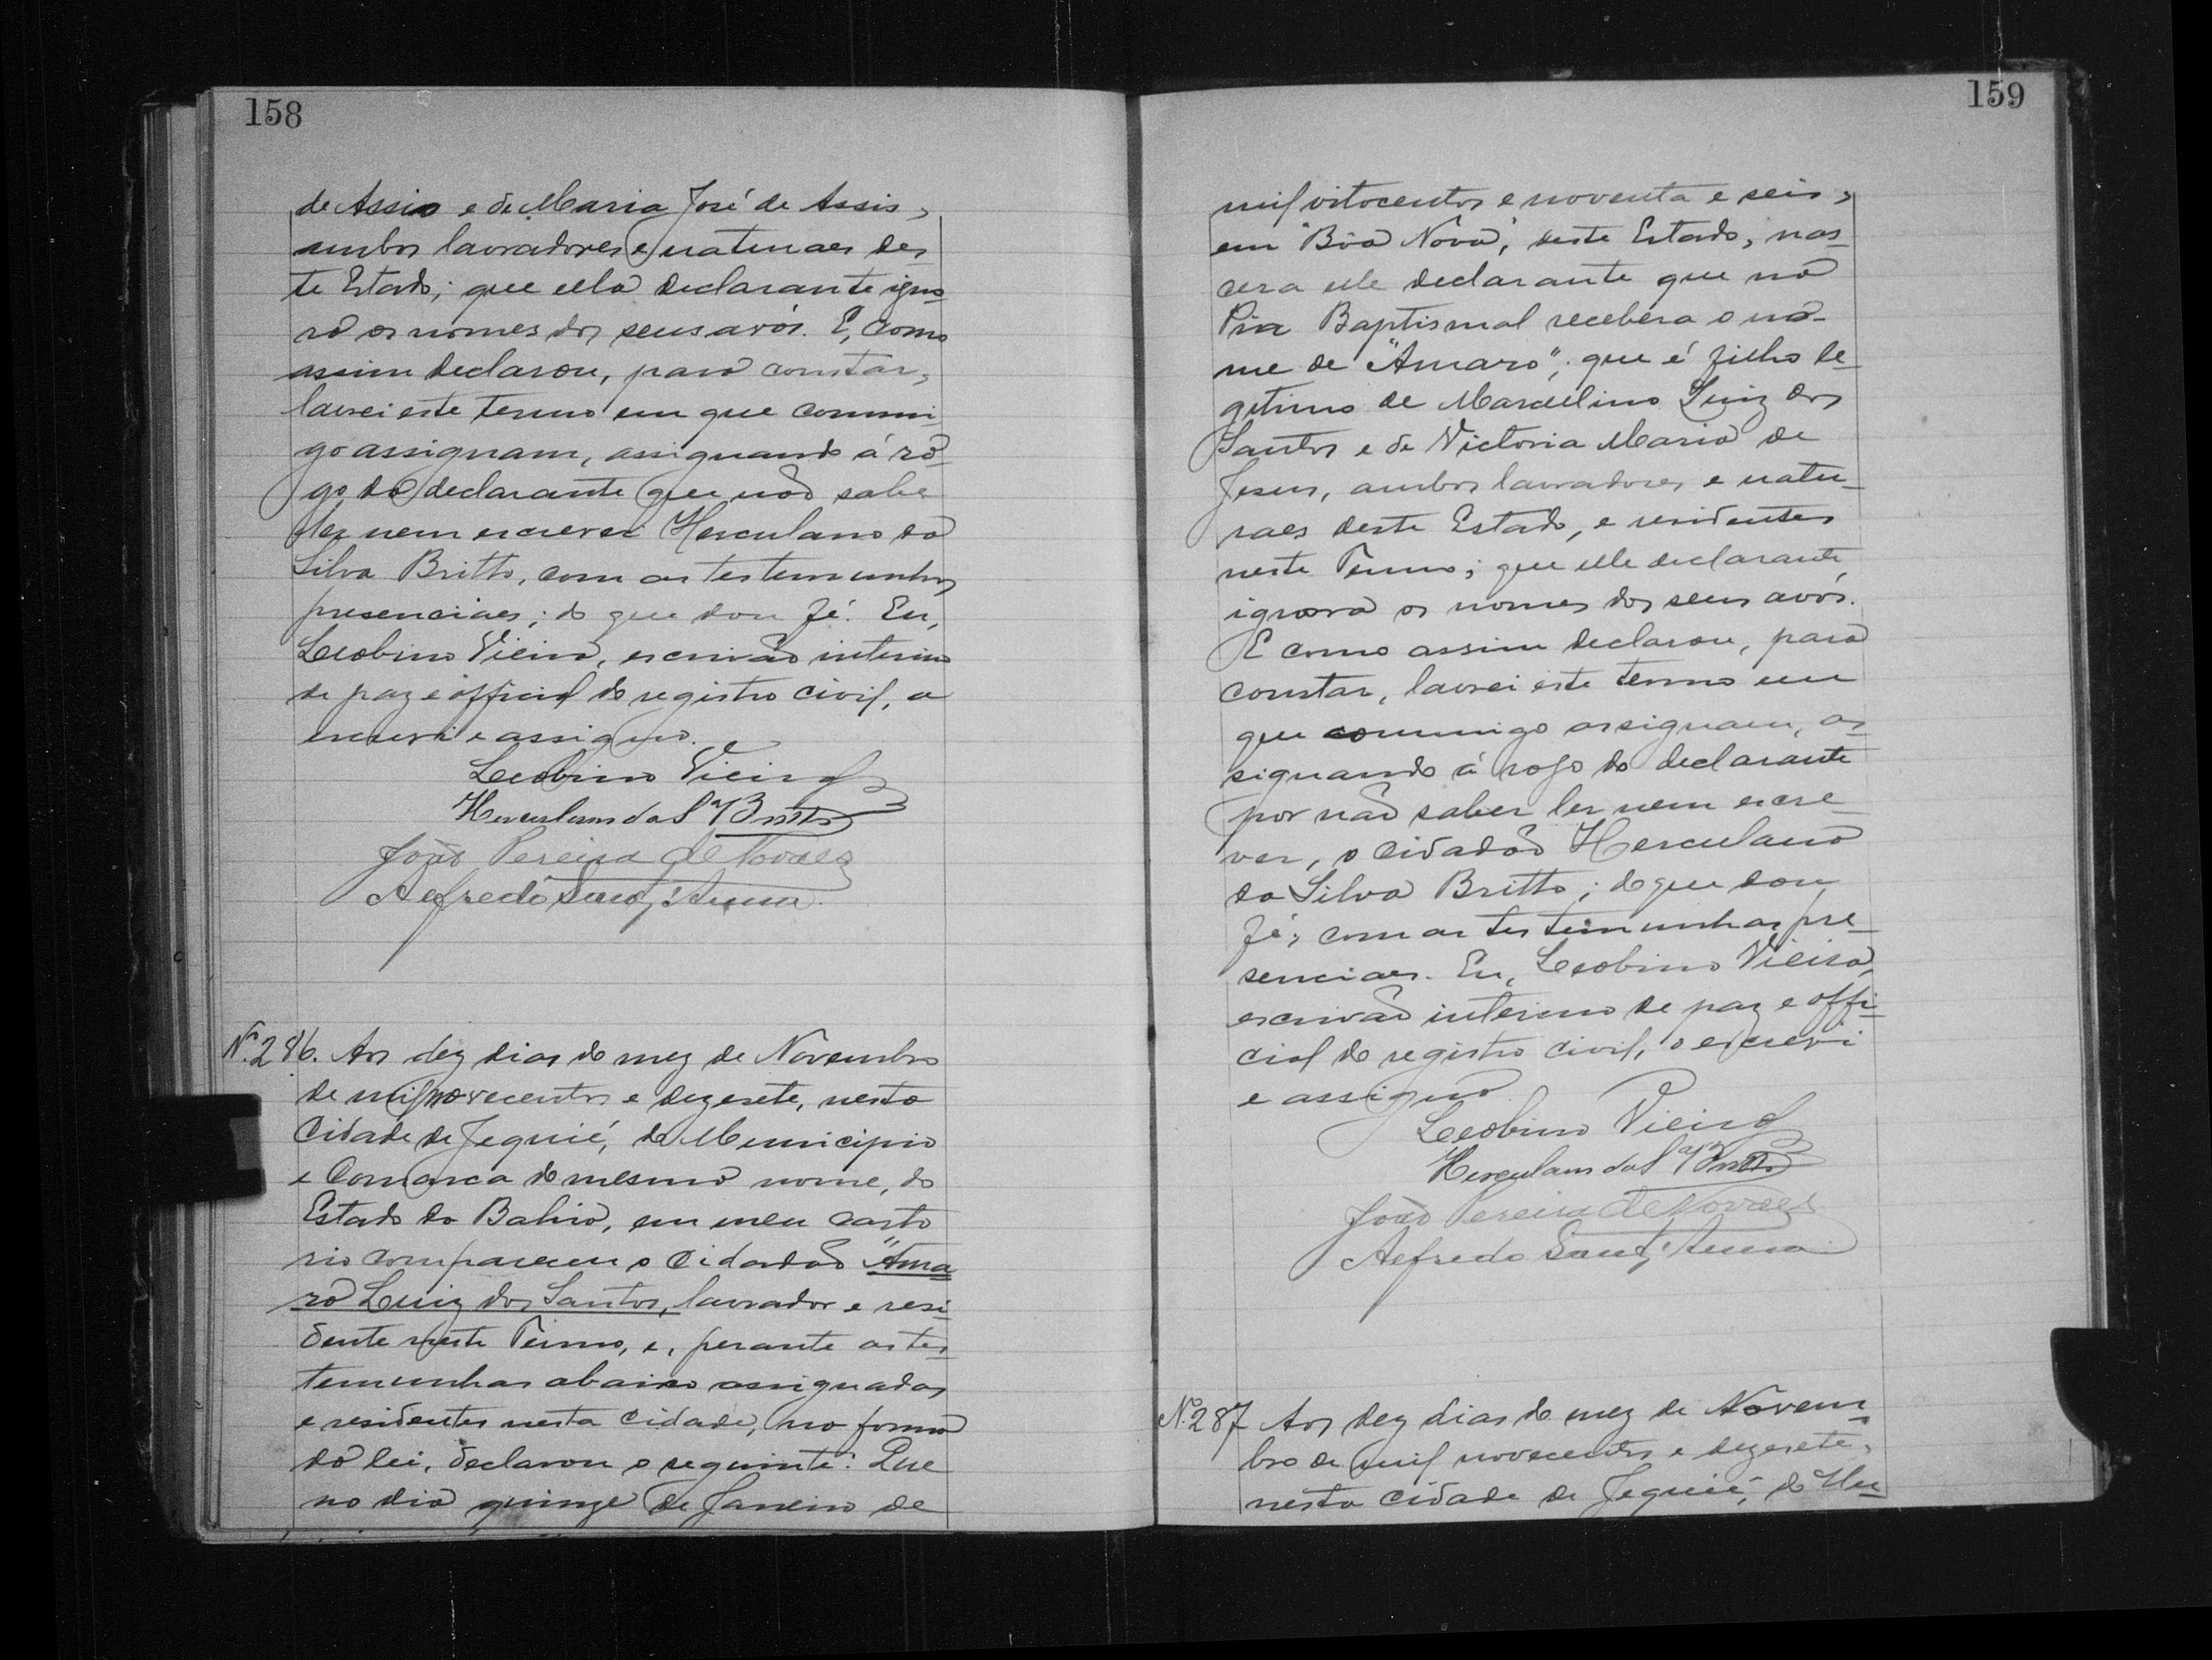 158
de Assis e de Maria José de Assis,
ambos lavradores e naturaes des
te Estado; que ella declarante igno
ra os nomes dos seus avós. E, como
assim declarou, para constar,
lavrei este termo em que commi-
go assignam, assignando á rô-
go da declarante que não sabe
ler nem escrever Herculano da
Silva Britto, com as testemunhas
presenciaes; do que dou fé. Eu,
Leobino Vieira, escrivão interino
de paz e official do registro civil, o
escrevi e assigno.
Leobino Vieira
Herculano da Sª Britto
João Pereira de Novaes
Alfredo Sant'Anna.
Nº. 286. Aos dez dias do mez de Novembro
de mil novecentos e dezesete, nesta
Cidade de Jequié, do Municipio
e Comarca do mesmo nome, do
Estado da Bahia, em meu carto
rio compareceu o Cidadão "Ama
ro Luiz dos Santos, lavrador e resi-
dente neste Termo, e, perante as tes-
temunhas abaixo assignadas
e residentes nesta cidade, na forma
da lei, declarou o seguinte: Que
no dia quinze de Janeiro de
159
mil oitocentos e noventa e seis,
em "Bôa Nova", deste Estado, nas-
cera elle declarante que na
Pia Baptismal recebêra o nô-
me de "Amaro"; que é filho le-
gitimo de Marcelino Luiz dos
Santos e de Victoria Maria de
Jesus, ambos lavradores e natu-
raes deste Estado, e residentes
neste Termo; que elle declarante
ignora os nomes dos seus avós.
E como assim declarou, para
constar, lavrei este termo em
que commigo assignam, as-
signando á rogo do declarante
por não saber ler nem escre-
ver, o cidadão Herculano
da Silva Britto; do que dou
fé, com as testemunhas pre-
senciaes. Eu, Leobino Vieira,
escrivão interino de paz e offi-
cial do registro civil, o escrevi
e assigno.
Leobino Vieira
Herculano da Sª Britto
João Pereira de Novaes
Alfredo Sant'Anna.
Nº. 287 Aos dez dias do mez de Novem-
bro de mil novecentos e dezesete,
nesta cidade de Jequié, do Mu-